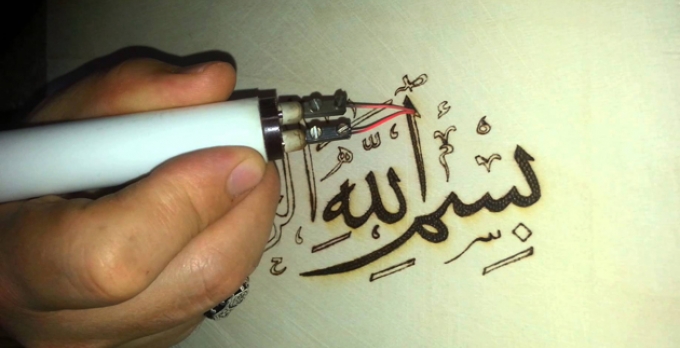 بِسْمِ اللَّهِ